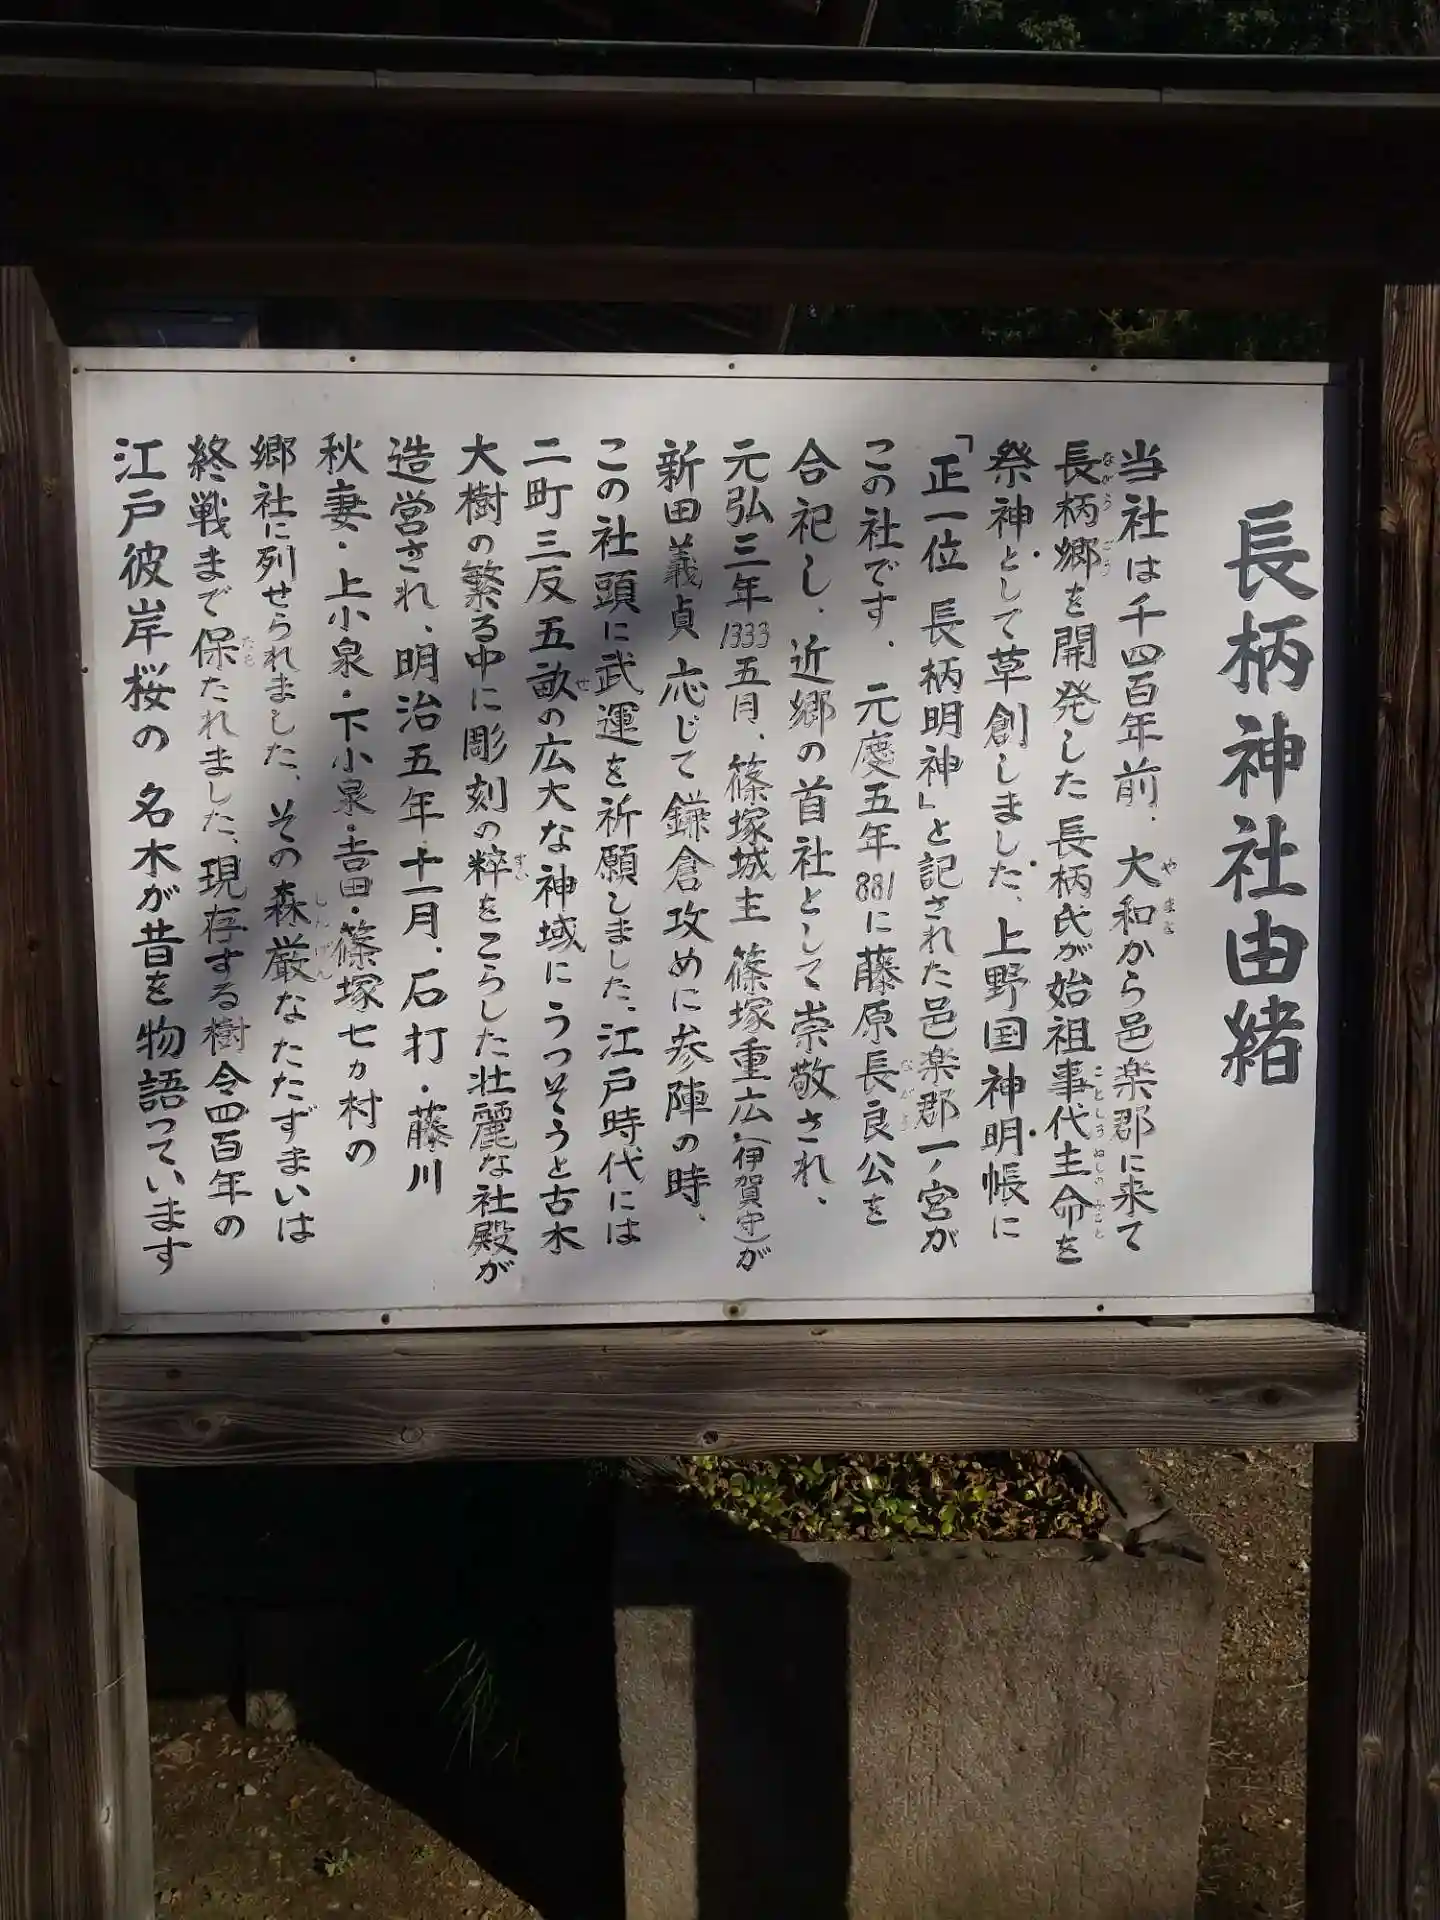 長柄神社由緒
当社は千四百年前、大和から邑楽郡に来て
長柄郷を開発した長柄氏が始祖事代主命を
祭神として草創しました、上野国神明帳に
「正一位 長柄明神」と記された邑楽郡一ノ宮が
この社です、元慶五年881に藤原長良公を
合祀し、近郷の首社として崇敬され、
元弘三年1333五月、篠塚城主 篠塚重広(伊賀守)が
新田義貞 応じて鎌倉攻めに参陣の時、
この社頭に武運を祈願しました、江戸時代には
二町三反五畝の広大な神域にうっそうと古木
大樹の繁る中に彫刻の粋をこらした壮麗な社殿が
造営され、明治五年十一月、石打・藤川
秋妻・上小泉・下小泉・吉田・篠塚七ヵ村の
郷社に列せられました、その森厳なたたずまいは
終戦まで保たれました、現存する樹令四百年の
江戸彼岸桜の 名木が昔を物語っています